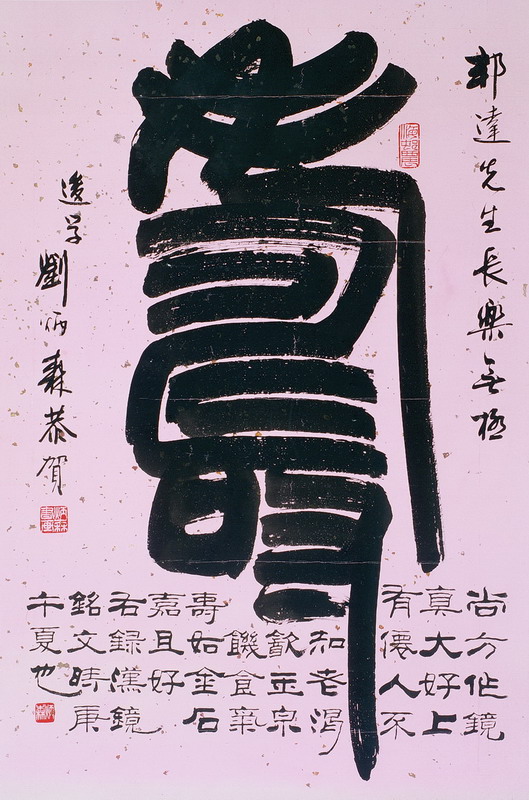 邦達先生長樂無極
壽
尚方作鏡
真大好上
有僊人不
知老渴
飲玉泉
饑食棗
壽如金石
嘉且好
右錄漢鏡
銘文時庚
午夏也
後学劉炳森恭賀